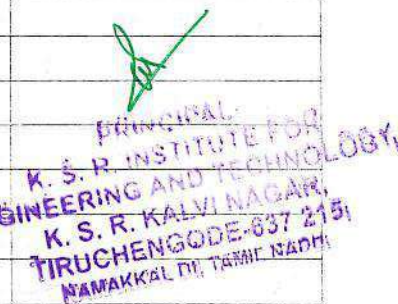 PRINCIPAL
K. S. R. INSTITUTE FOR
GINEERING AND TECHNOLOGY,
K. S. R. KALVI NAGAR,
TIRUCHENGODE-637 215,
NAMAKKAL Dt. TAMIL NADU